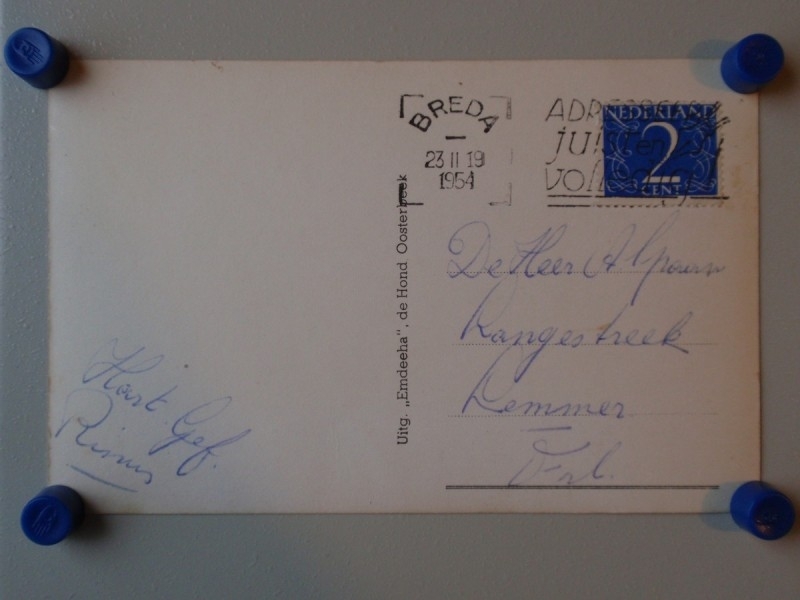 BREDA
23 II 19
1954
ADRESSEER
JUIST en
VOLLEDIG
NEDERLAND
2
CENT
Uitg. „Emdeeha”, de Hond Oosterbeek
De Heer A.
Langestreek
Lemmer
Frl.
Hart. Gef.
Rinus